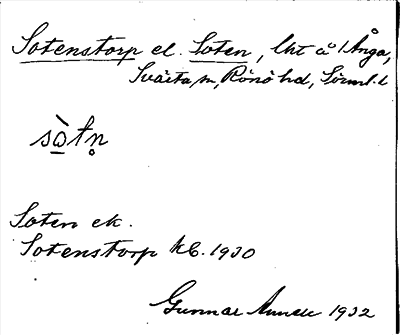 Sotenstorp el. Soten, lht å Ånga,
Svärta sn, Rönö hd, Sörml. l
sòtn̥
Soten ek.
Sotenstorp kb. 1930
Gunnar 1932